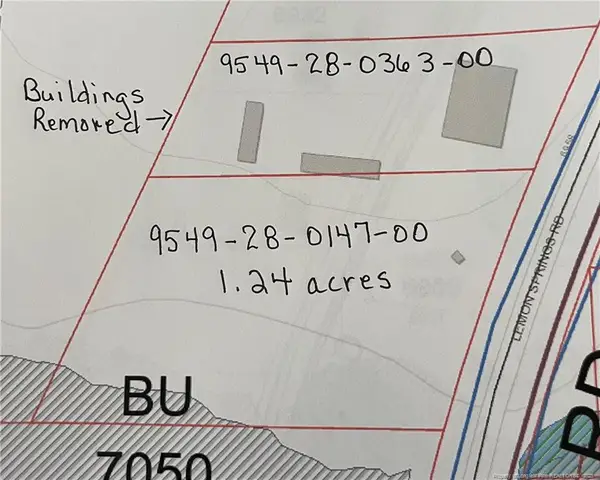 9549-28-0363-00
Buildings
Removed →
9549-28-0147-00
1.24 acres
LEMON SPRINGS RD
BU
7050
RD